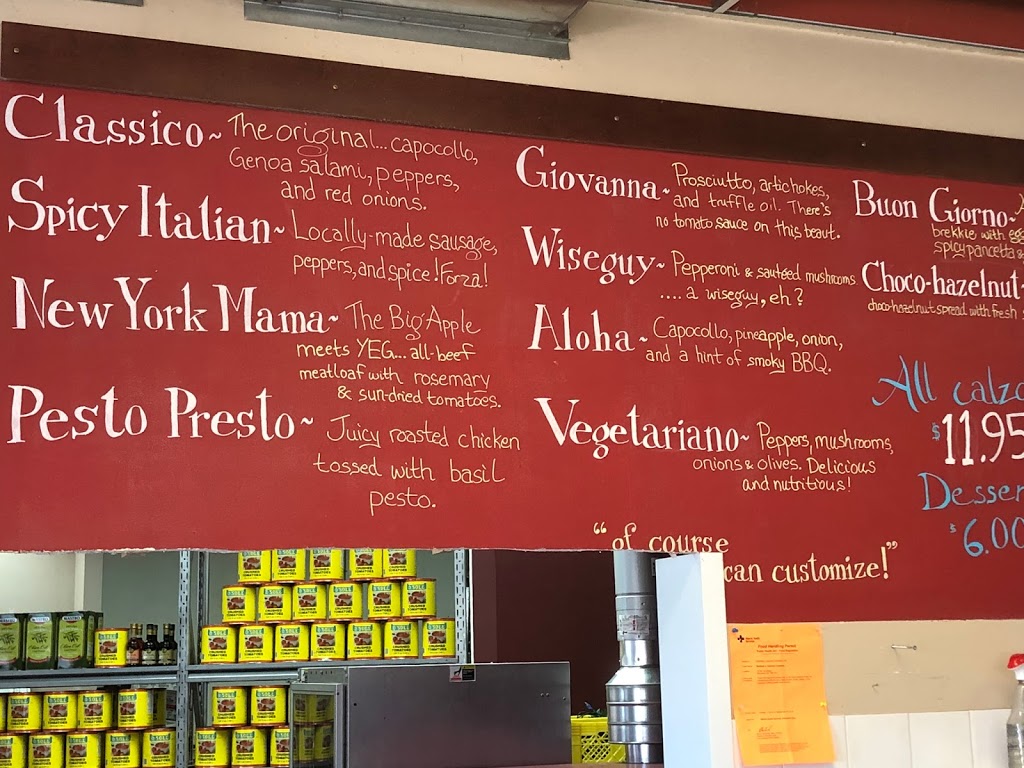 Classico~ The original... capocollo,
Genoa salami, peppers,
and red onions.
Spicy Italian~ Locally-made sausage,
peppers, and spice! Forza!
New York Mama~ The Big Apple
meets YEG... all-beef
meatloaf with rosemary
& sun-dried tomatoes.
Pesto Presto~ Juicy roasted chicken
tossed with basil
pesto.
Giovanna~ Prosciutto, artichokes,
and truffle oil. There's
no tomato sauce on this beaut.
Wiseguy~ Pepperoni & sautéed mushrooms
.... a wiseguy, eh?
Aloha~ Capocollo, pineapple, onion,
and a hint of smoky BBQ.
Vegetariano~ Peppers, mushrooms,
onions & olives. Delicious
and nutritious!
"of course
can customize!"
Buon Giorno~
brekkie with
spicy pancetta &
Choco-hazelnut~
choco-hazelnut spread with fresh
All
$11.95
$6.00
CRUSHED
TOMATOES
Food Handling Permit